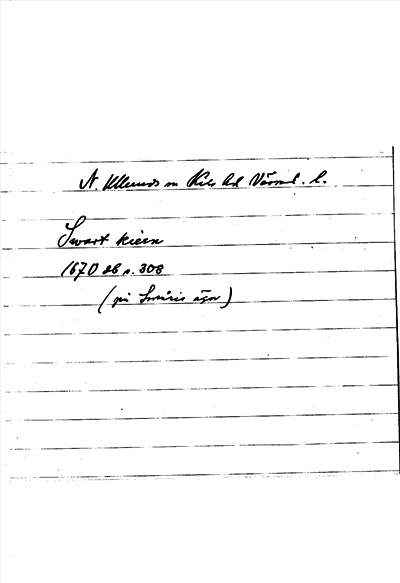 N. Ullerud sn Kils hd Värml. l.
Swart kiern
1670 db s. 308
(på ägor)